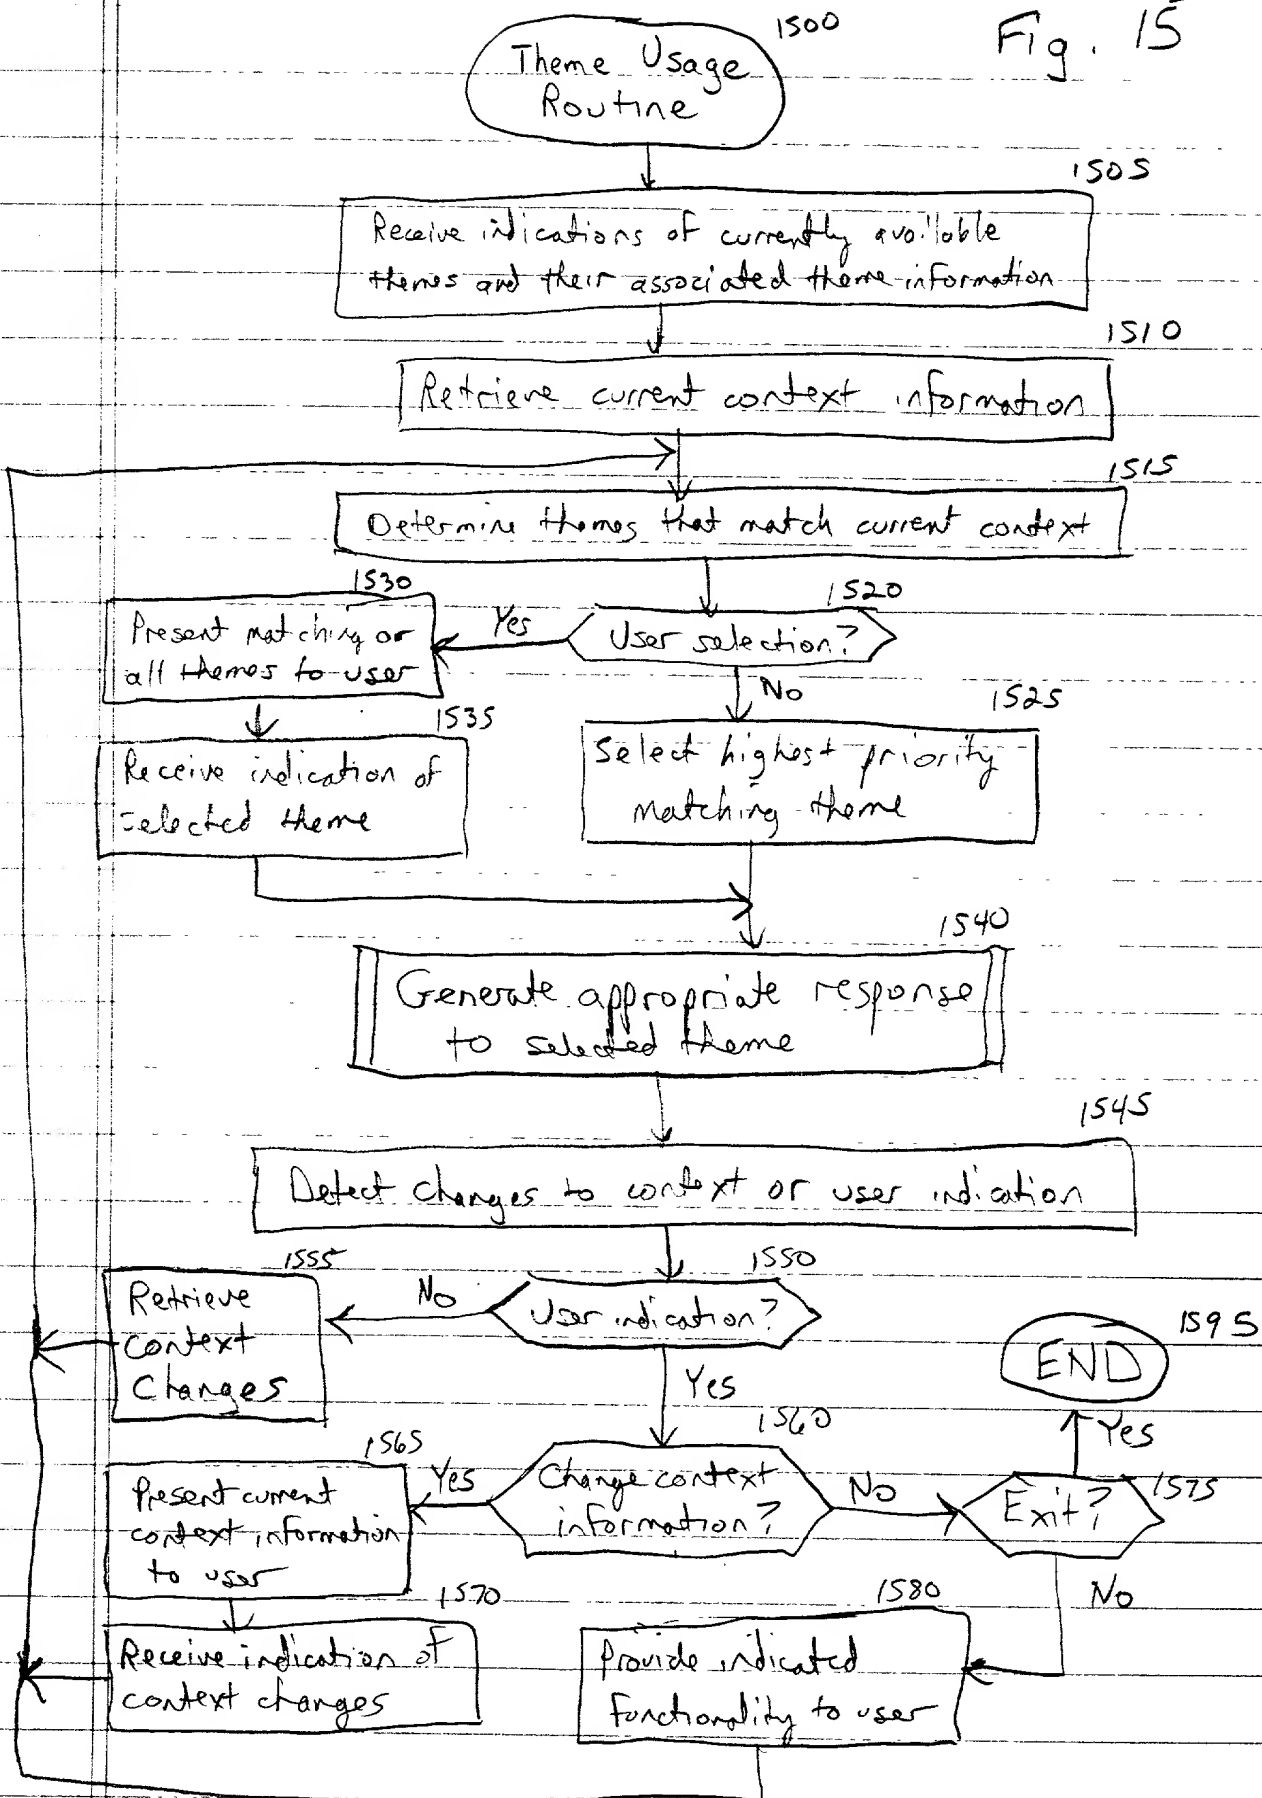 1500
Fig. 15
Theme Usage
Routine
1505
Receive indications of currently available
themes and their associated theme information
1510
Retrieve current context information
1515
Determine themes that match current context
1520
User selection?
Yes
1530
Present matching or
all themes to user
No
1525
Select highest priority
matching theme
1535
Receive indication of
selected theme
1540
Generate appropriate response
to selected theme
1545
Detect changes to context or user indication
1550
User indication?
No
1555
Retrieve
context
changes
Yes
1560
Change context
information?
Yes
1565
Present current
context information
to user
1570
Receive indication of
context changes
No
1575
Exit?
Yes
1595
END
No
1580
Provide indicated
functionality to user